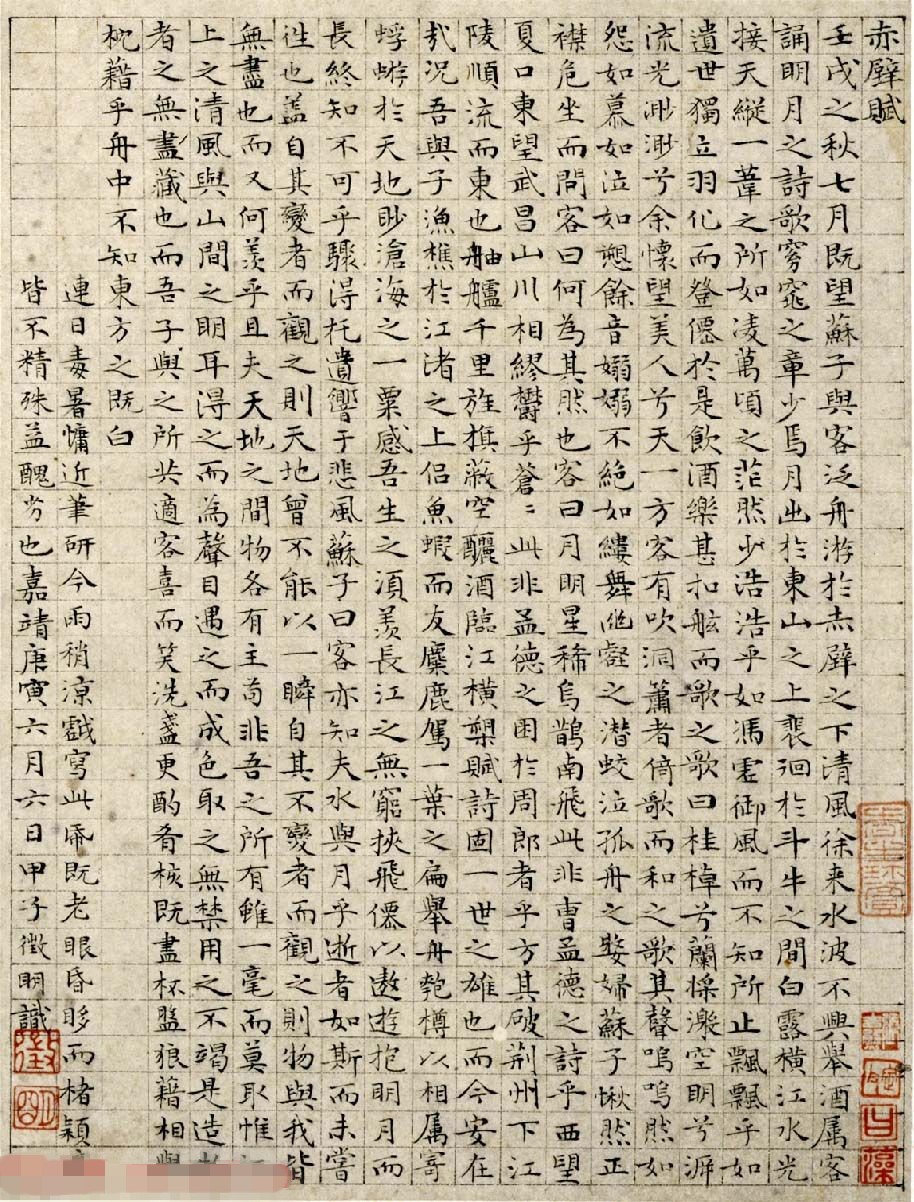 赤壁賦
壬戌之秋七月既望蘇子與客泛舟游於赤壁之下清風徐来水波不興舉酒属客
誦明月之詩歌窈窕之章少焉月出於東山之上裴洄於斗牛之間白露橫江水光
接天縱一葦之所如凌萬頃之茫然少浩浩乎如馮虛御風而不知所止飄飄乎如
遺世獨立羽化而登僊於是飲酒樂甚扣舷而歌之歌曰桂棹兮蘭槳激空明兮泝
流光渺渺兮余懷望美人兮天一方客有吹洞蕭者倚歌而和之歌其聲嗚嗚然如
怨如慕如泣如愬餘音嫋嫋不絕如縷舞幽壑之潛蛟泣孤舟之嫠婦蘇子愀然正
襟危坐而問客曰何為其然也客曰月明星稀烏鵲南飛此非曹孟德之詩乎西望
夏口東望武昌山川相繆鬱乎蒼〻此非孟德之困於周郎者乎方其破荊州下江
陵順流而東也舳艫千里旌旗蔽空釃酒臨江橫槊賦詩固一世之雄也而今安在
哉況吾與子漁樵於江渚之上侶魚蝦而友麋鹿駕一葉之扁舉舟匏樽以相属寄
蜉蝣於天地眇滄海之一粟感吾生之須羨長江之無窮挾飛僊以遨遊抱明月而
長終知不可乎驟得托遺響于悲風蘇子曰客亦知夫水與月乎逝者如斯而未嘗
往也盖自其變者而觀之則天地曾不能以一瞬自其不變者而觀之則物與我皆
無盡也而又何羨乎且夫天地之間物各有主苟非吾之所有雖一毫而莫取惟
上之清風與山間之明耳得之而為聲目遇之而成色取之無禁用之不竭是造
者之無盡藏也而吾子與之所共適客喜而笑洗盞更酌肴核既盡杯盤狼籍相與
枕藉乎舟中不知東方之既白
連日毒暑慵近筆研今雨稍涼戲寫此帋既老眼昏眵而楮穎
皆不精殊益醜劣也嘉靖庚寅六月六日甲子徵明識
徵
明